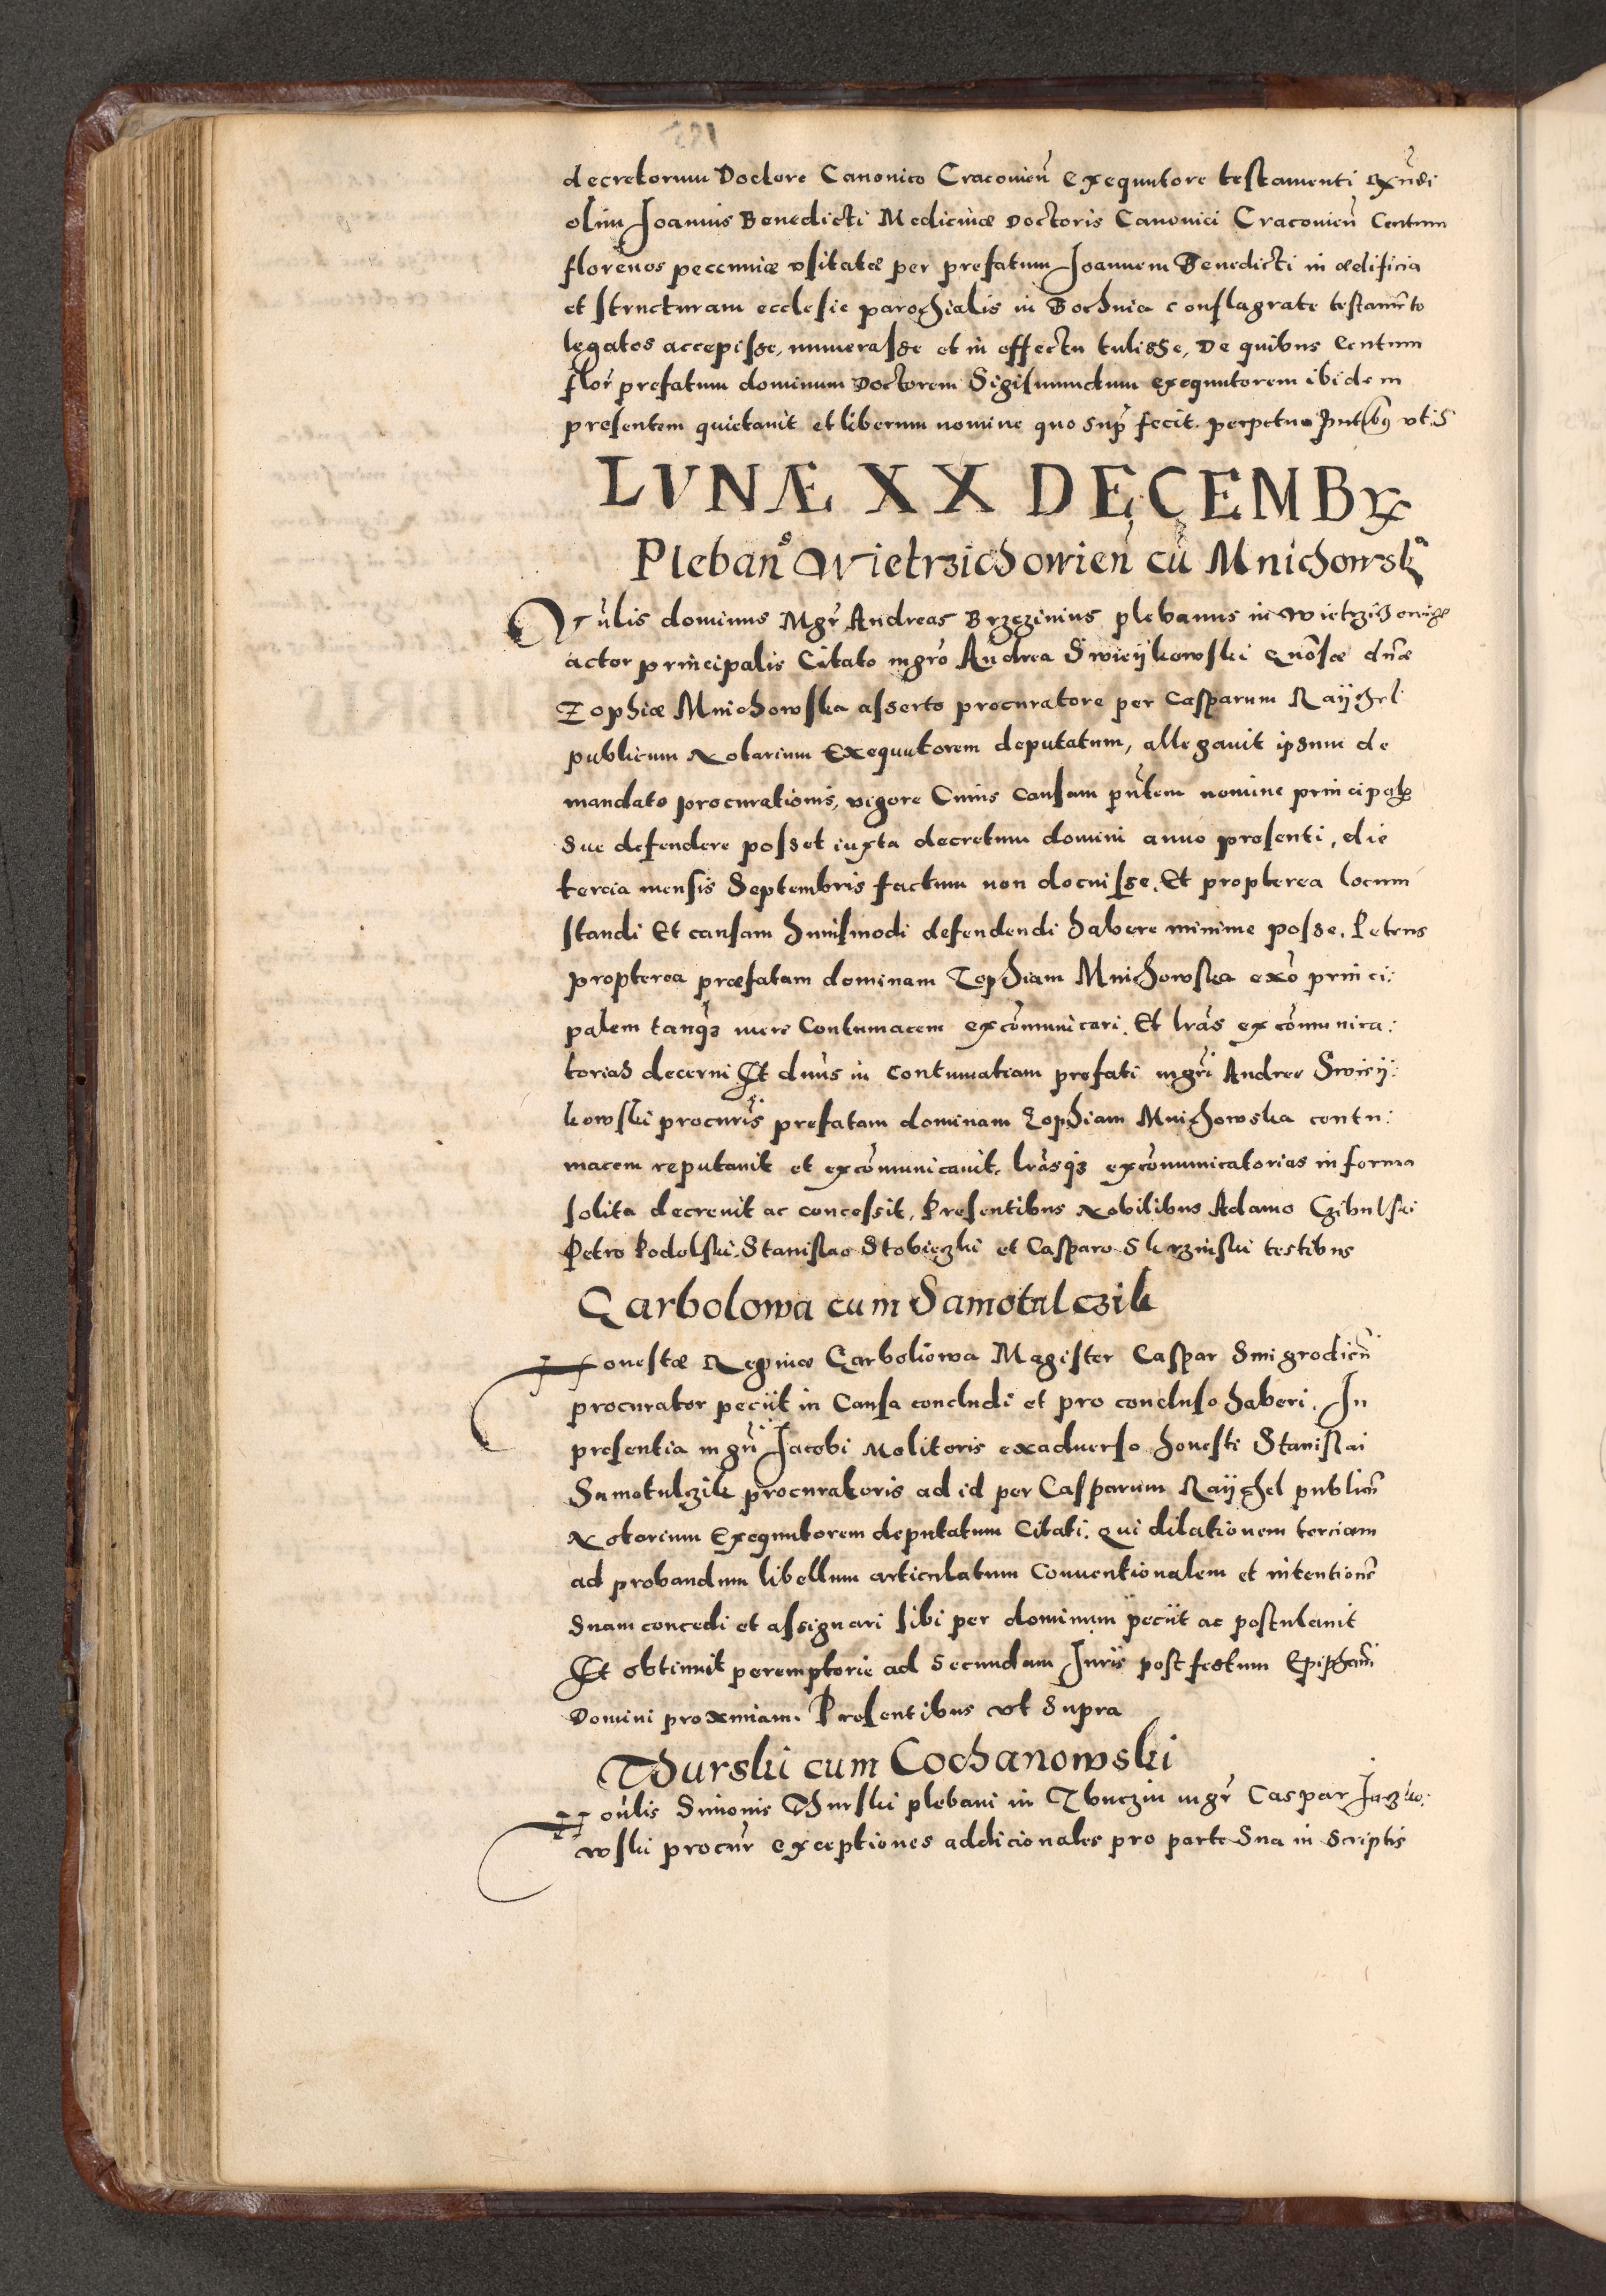 decretorum Doctore Canonico Cracovien̄ exequutore testamenti
olim Joannis Benedicti Medicinæ Doctoris Canonici Cracovien̄ Centum
florenos peccuniæ vsitatæ per prefatum Joannem Benedicti in ædificia
et structuram ecclesie parochialis in Bochnia conflagrate testamēto
legatos accepisse, numerasse et in effectu tulisse, De quibus Centum
flor̄ prefatum dominum Doctorem Sigismundum exequutorem ibidem
presentem quietauit et liberum nomine quo sup̄ fecit. perpetuo p̄ntibus vt S
LVNÆ XX DECEMBR
Pleban9 Wietrzichowien̄ cū Mnichowsk
Vn̄lis dominus Mgr̄ Andreas Brzezinius plebanus in Wietrzichowicze
actor principalis Citato mgr̄o Andrea Swieÿkowski Gn̄osæ dn̄æ
Zophiæ Mnichowska asserto procuratore per Casparum Raÿchel
publicum Notarium Exequutorem deputatum, allegauit ipsum de
mandato procurationis, vigore Cuius Causam pn̄tem nomine principalis
sue defendere posset iuxta decretum domini anno presenti, die
tercia mensis Septembris factum non docuisse, Et propterea locum
standi Et causam huiusmodi defendendi habere minime posse. Petens
propterea præfatam dominam Zophiam Mnichowska exō princi:
palem tanqz vere Contumacem excōmunicari. Et lr̄as excōmunica:
torias decerni Et dn̄us in Contumatiam prefati mgr̄i Andree Swieÿ:
kowski procur̄is prefatam dominam Zophiam Mnichowska contu:
macem reputauit et excōmunicauit, lr̄asqz excōmunicatorias in forma
solita decreuit ac concessit, Presentibus Nobilibus Adamo Czibulski
Petro Podolski. Stanislao Stobieczki et Casparo Skrzinski testibus
Garbolowa cum Samotulczik
Honestæ Reginæ Garboliowa Magister Caspar Smigrodien̄
procurator peciit in Causa concludi et pro concluso haberi. In
presentia mgr̄i Jacobi Molitoris exaduerso honesti Stanislai
Samotulczik procuratoris ad id per Casparum Raÿchel publicū
Notarium Exequutorem deputatum Citati. Qui dilationem terciam
ad probandum libellum articulatum Conuentionalem et intentionē
suam concedi et assignari sibi per dominum peciit ac postulauit
Et obtinuit peremptorie ad secundam Juris post festum Epiphani
Domini proximam. Presentibus vt supra
Thurski cum Cochanowski
Honlis Simonis Thurski plebani in mgr̄ Caspar Jaczko:
wski procur̄ exceptiones addicionales pro parte sua in scriptis